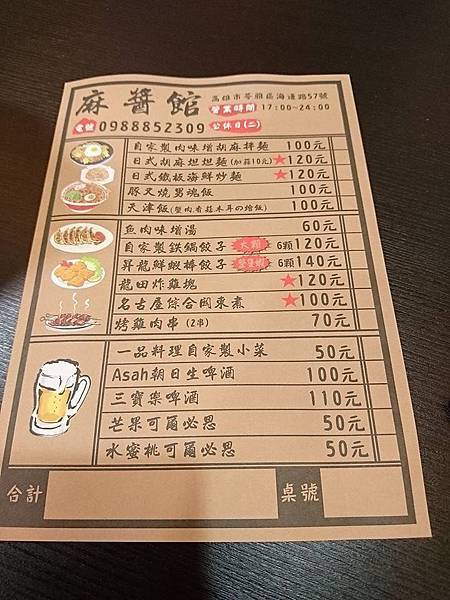 麻醬館
高雄市苓雅區海邊路57號
營業時間 17:00~24:00
電號 0988852309 公休日(二)
自家製肉味增胡麻拌麵 100元
日式胡麻坦坦麵(加蒜10元)★120元
日式鐵板海鮮炒麵 ★120元
豚叉燒男魂飯 100元
天津飯(蟹肉香菇木耳の燴飯) 100元
魚肉味增湯 60元
自家製鉄鍋餃子 大顆 6顆120元
昇龍鮮蝦棒餃子 6顆140元
龍田炸雞塊 ★120元
名古屋綜合関東煮 ★100元
烤雞肉串(2串) 70元
一品料理自家製小菜 50元
Asah朝日生啤酒 100元
三寶樂啤酒 110元
芒果可爾必思 50元
水蜜桃可爾必思 50元
合計
桌號